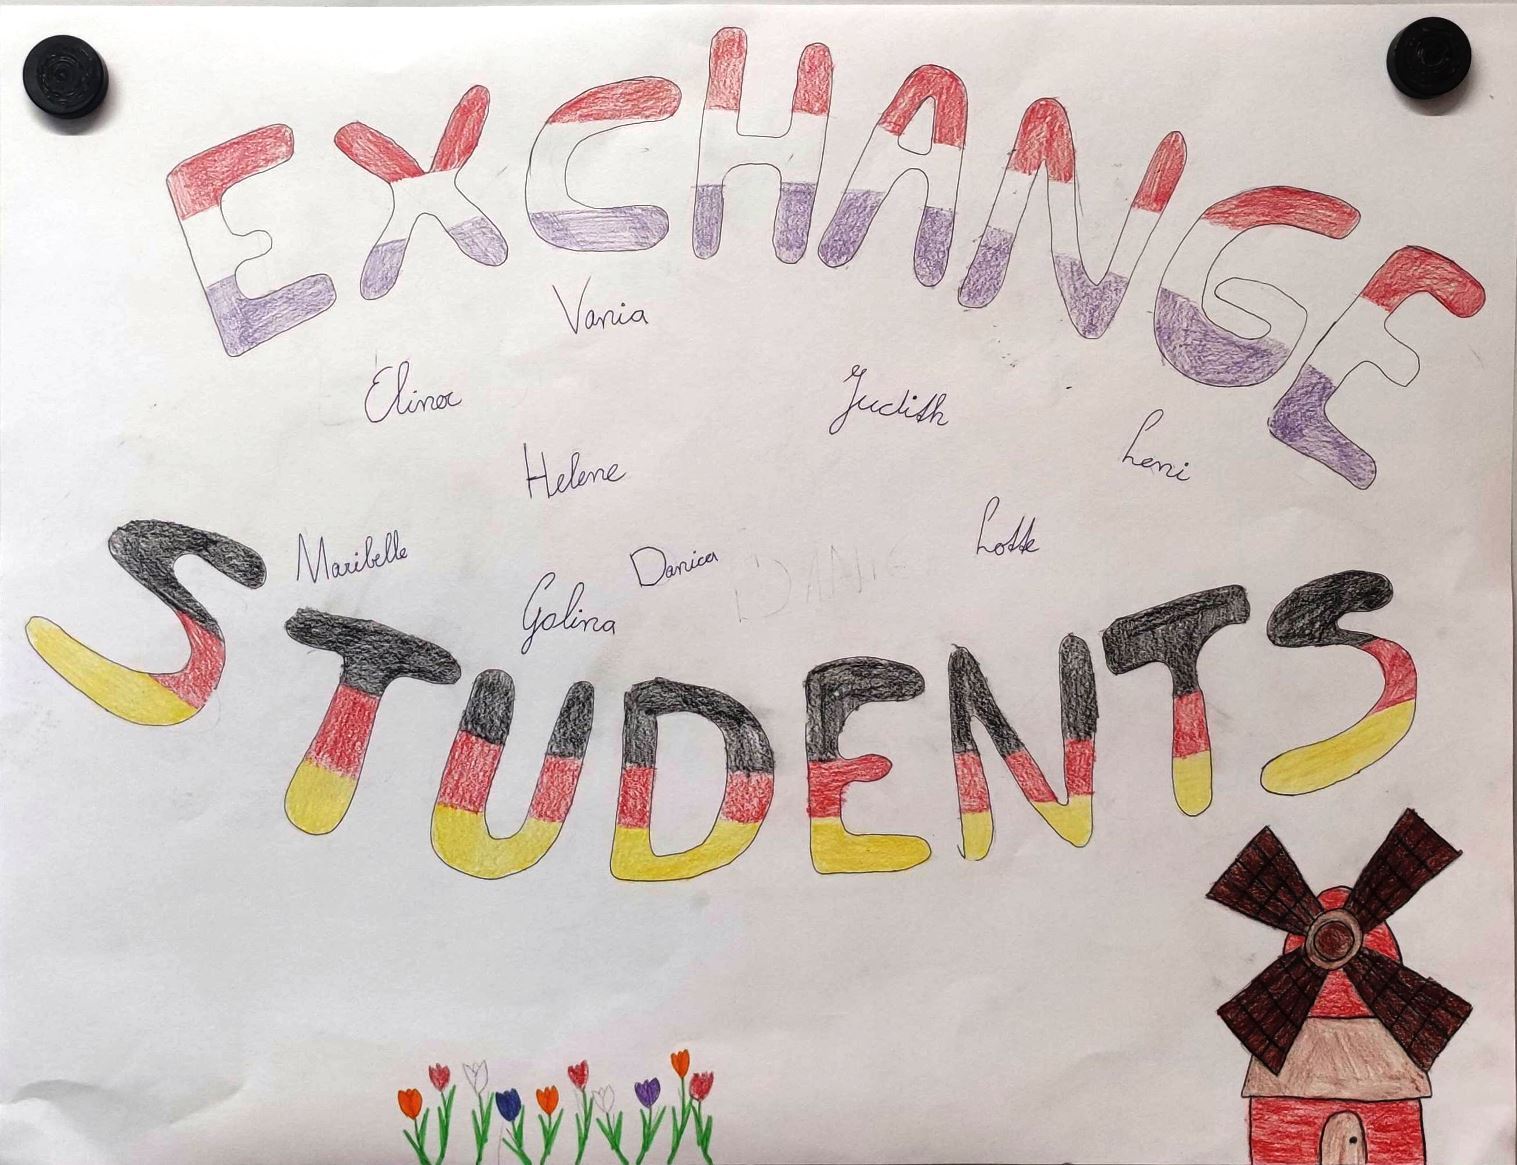 EXCHANGE
Vania
Elinor
Judith
Leni
Helene
Lotte
Maribelle
Danica
DANIC
Galina
STUDENTS